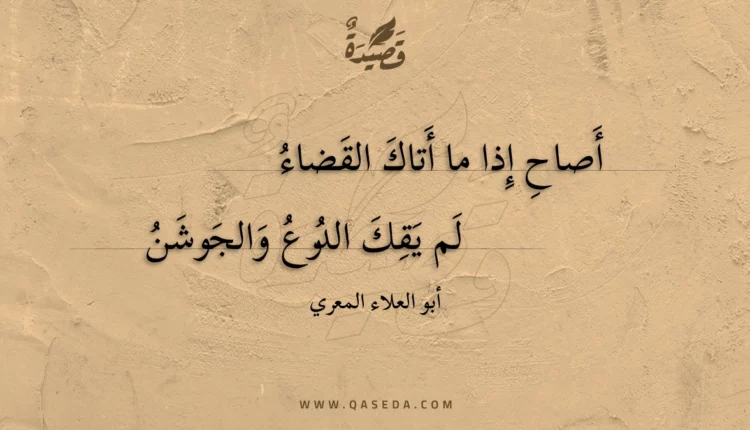 قَصِيدَةٌ
أَصاحِ إِذا ما أَتاكَ القَضاءُ
لَم يَقِكَ الدُوعُ وَالجَوشَنُ
أبو العلاء المعري
WWW.QASEDA.COM